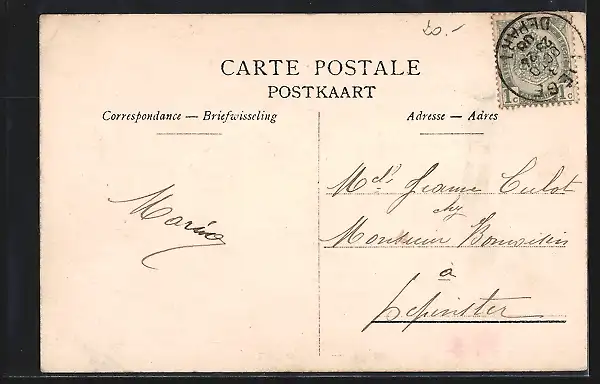 20.-
CARTE POSTALE
POSTKAART
Correspondance — Briefwisseling
Adresse — Adres
LIEGE
DEPART
1c 1c
Maria
Mdlle Jeanne Culot
chez
Monsieur
à
Pepinster